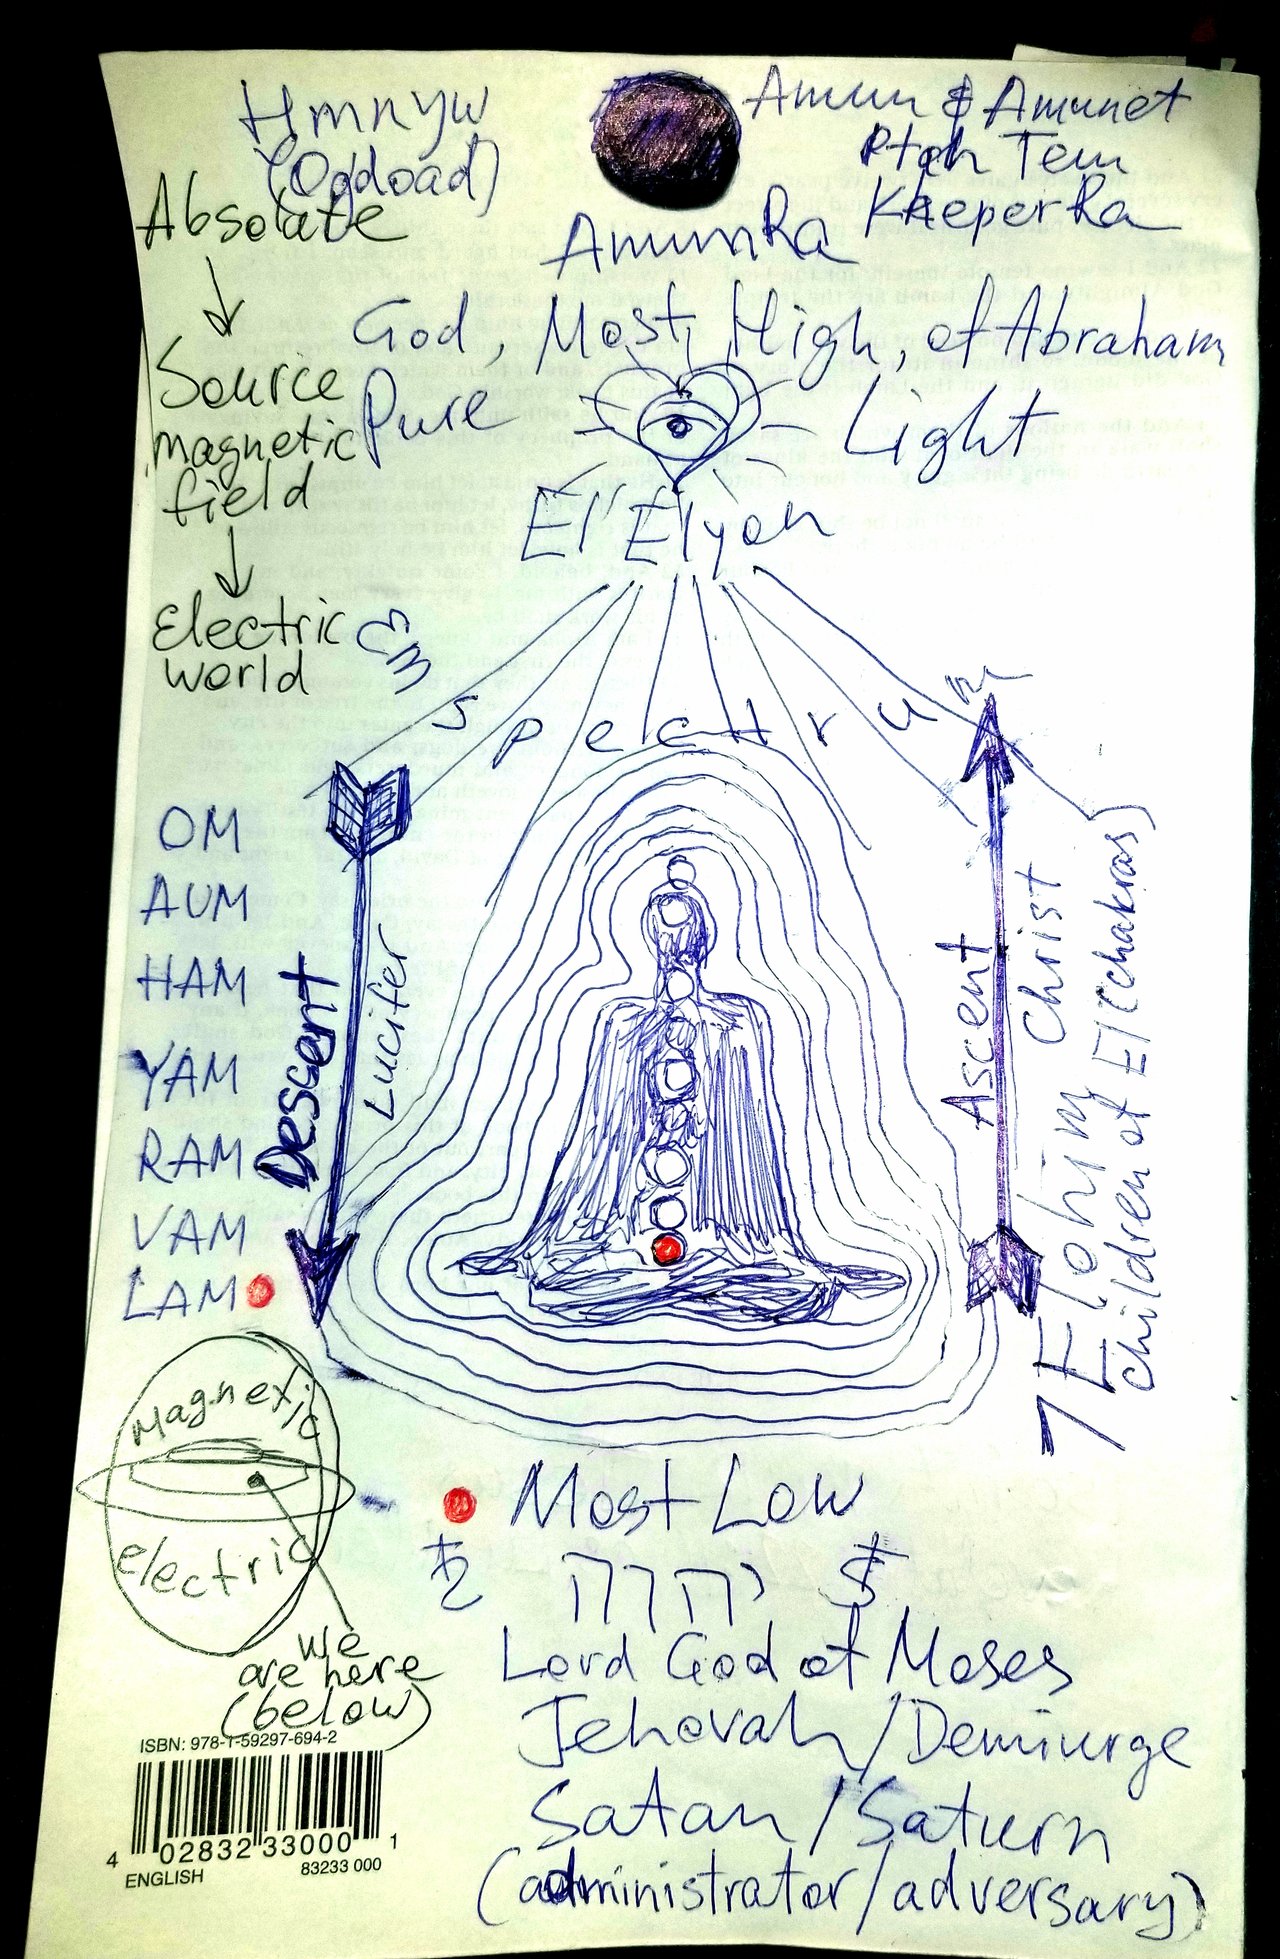 Hmnyw
(Ogdoad)
Amun & Amunet
Ptah Tem
KheperRa
AmunRa
Absolute
Source
magnetic
field
Electric
world
God, Most High, of Abraham
Pure Light
El'Elyon
EM spectrum
OM
AUM
HAM
YAM
RAM
VAM
LAM
Descent
Lucifer
Ascent
Christ
7 Elohim
children of El (chakras)
Magnetic
electric
we
are here
(below)
Most Low
♄ יהוה $
Lord God of Moses
Jehovah/Demiurge
Satan/Saturn
(administrator/adversary)
ISBN: 978-1-59297-694-2
4 02832 33000 1
ENGLISH 83233 000